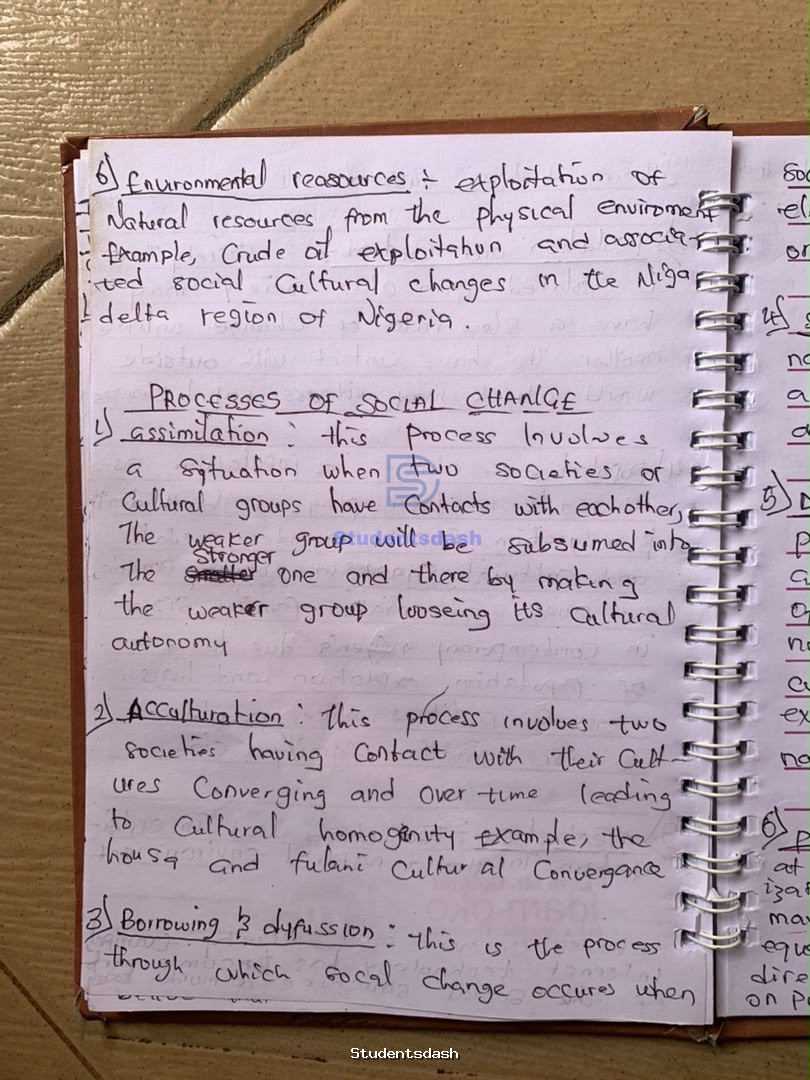 6) Environmental reasources :- exploitation of
Natural resources from the physical enviroment
Example, Crude oil exploitation and associa-
ted social Cultural changes in the Niga
delta region of Nigeria.
PROCESSES OF SOCIAL CHANGE
1) assimilation : this process Involves
a situation when two societies or
Cultural groups have Contacts with eachother,
The weaker group will be subsumed into
The stronger one and there by making
the weaker group looseing its Cultural
autonomy
2) Acculturation : This process involves two
societies having Contact with their Cult-
ures Converging and over time leading
to Cultural homoginity example, the
housa and fulani Cultural Convergance
3) Borrowing & dyfussion : This is the process
through which social change occures when
soc
el
or
4)
no
a
d
5)
p
ci
or
no
cu
ex
na
6) p
at
izat
ma
equ
dire
on p
Studentsdash
Studentsdash